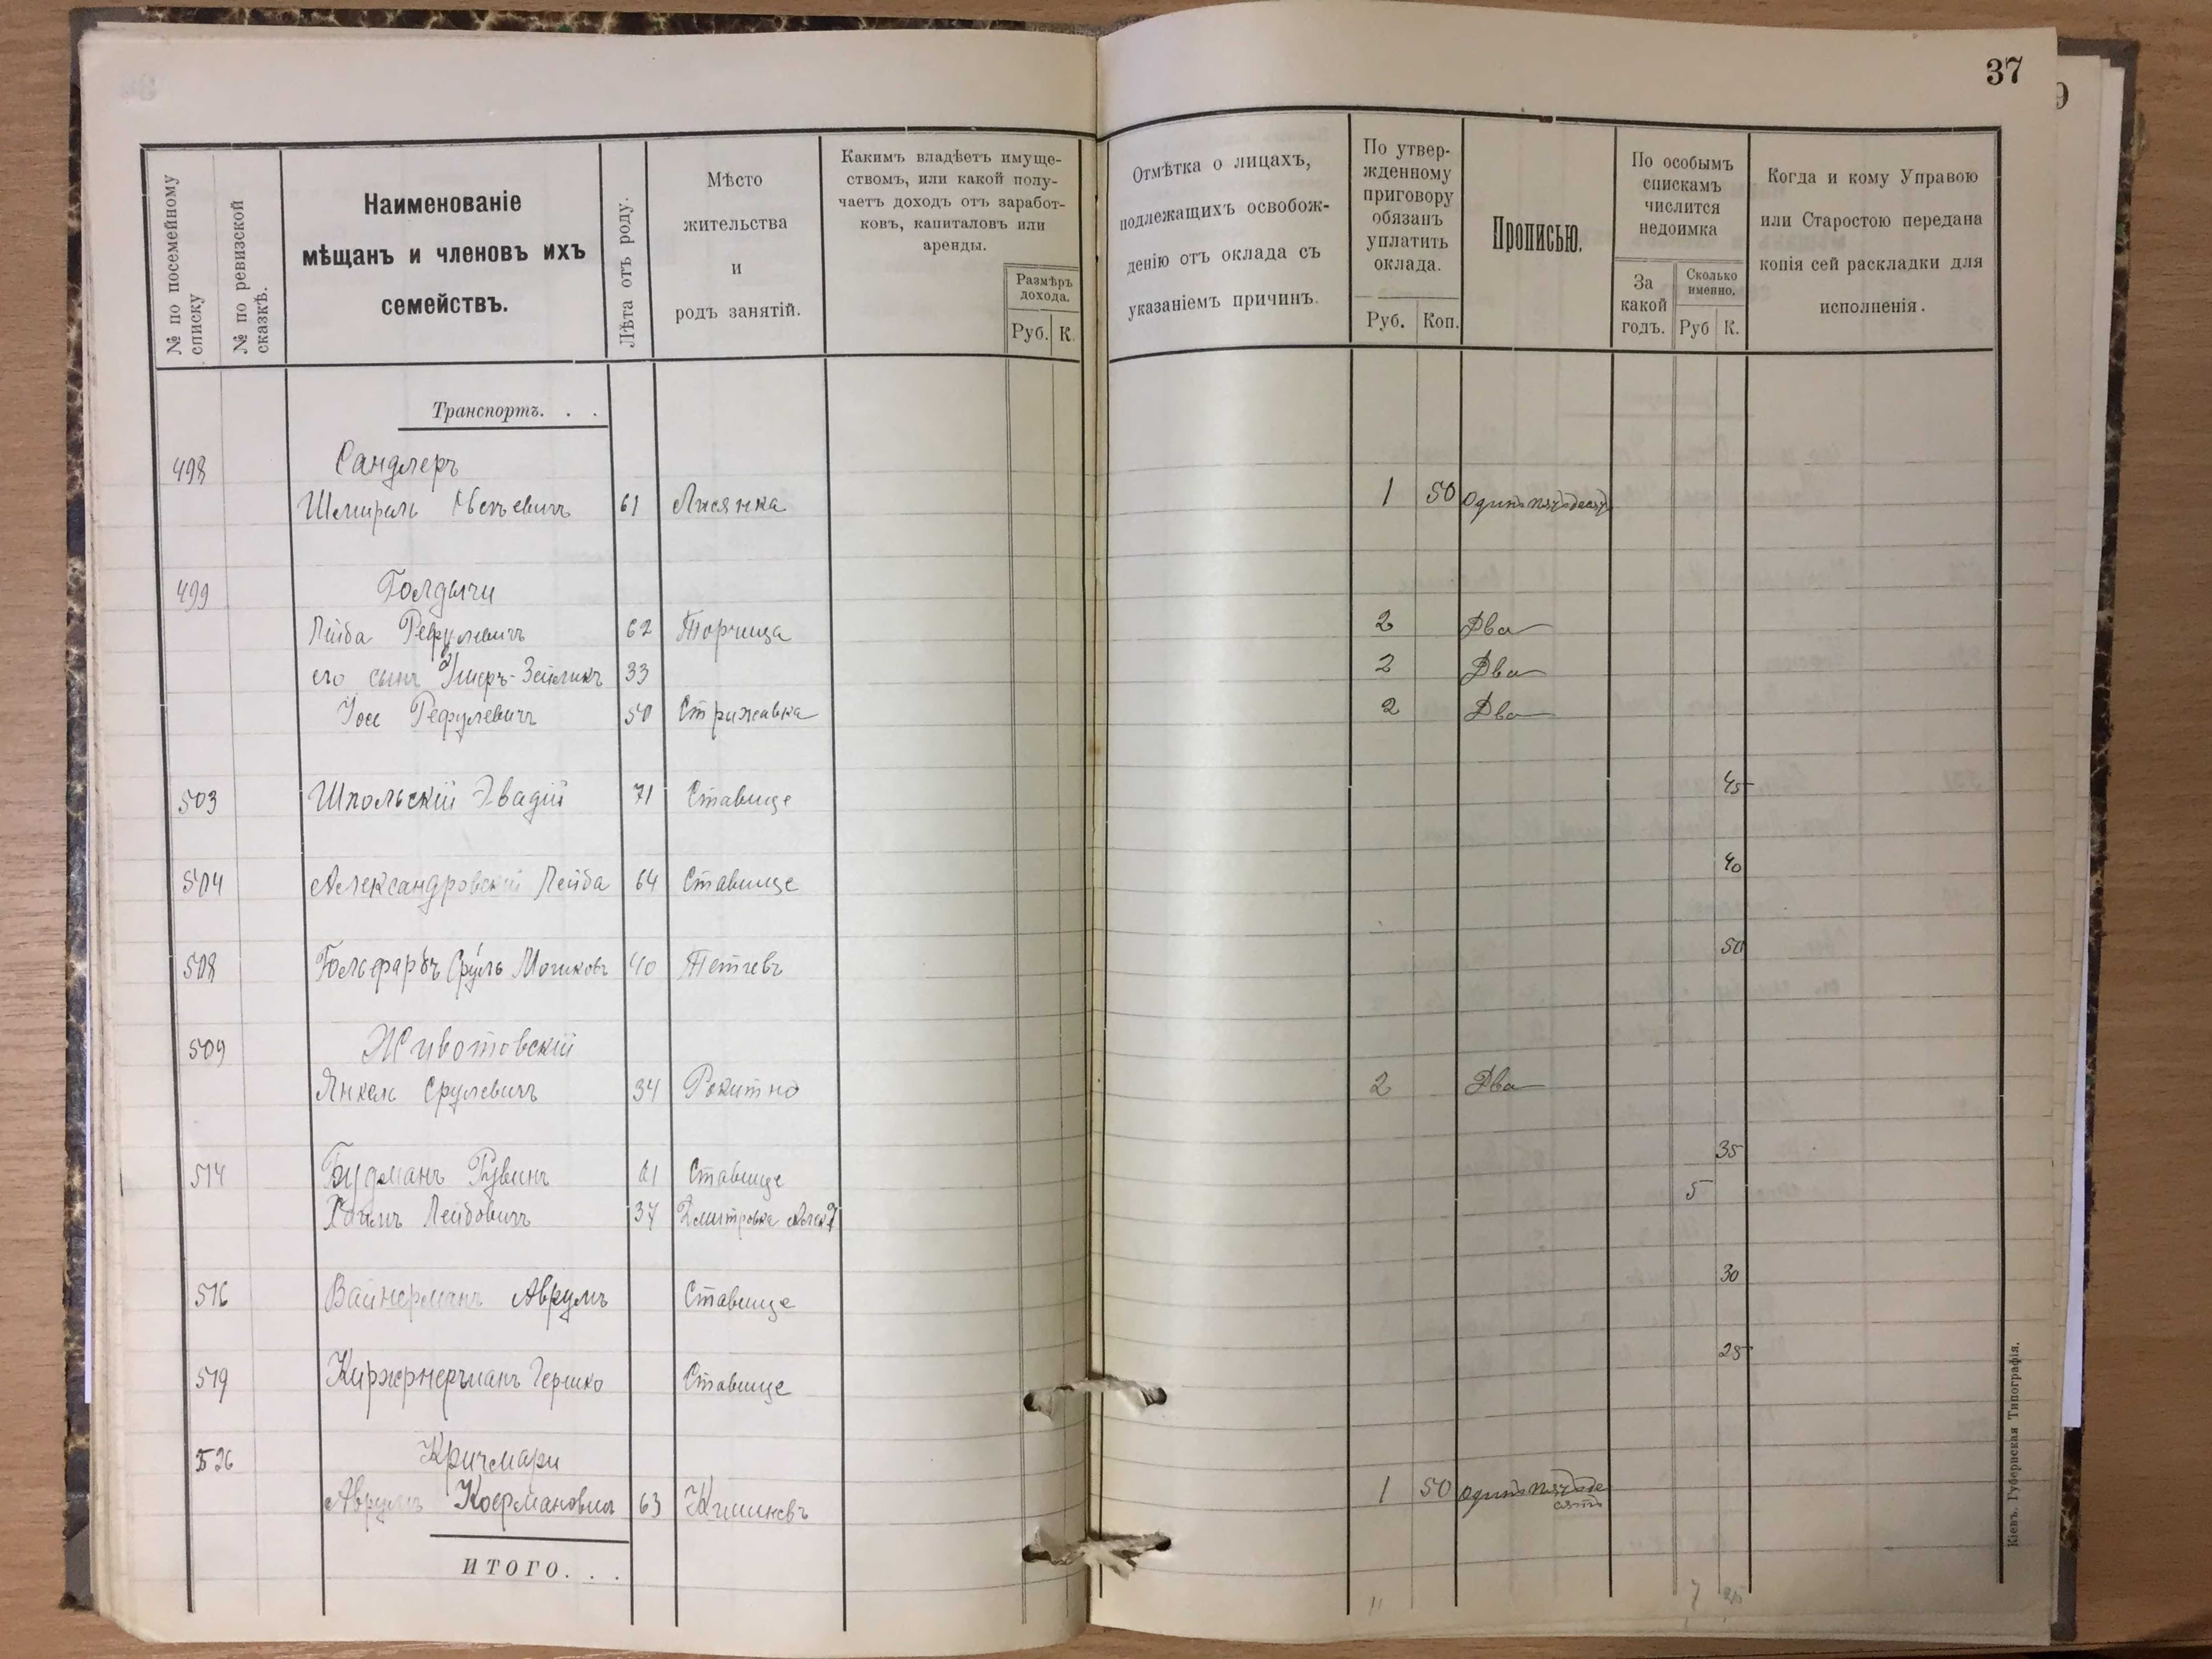 37
№ по посемейному списку
№ по ревизской сказкѣ.
Наименованіе
мѣщанъ и членовъ ихъ
семействъ.
Лѣта отъ роду.
Мѣсто
жительства
и
родъ занятій.
Какимъ владѣетъ имуще-
ствомъ, или какой полу-
чаетъ доходъ отъ заработ-
ковъ, капиталовъ или
аренды.
Размѣръ
дохода.
Руб. К.
Отмѣтка о лицахъ,
подлежащихъ освобож-
денію отъ оклада съ
указаніемъ причинъ.
По утвер-
жденному
приговору
обязанъ
уплатить
оклада.
Руб. Коп.
Прописью.
По особымъ
спискамъ
числится
недоимка
За
какой
годъ.
Сколько
именно.
Руб К.
Когда и кому Управою
или Старостою передана
копія сей раскладки для
исполненія.
Транспортъ. . .
498 Сандлеръ
61 Лисянка 1 50
499 Голдычи
Лейба Рефулевичъ 62 Торчица 2 Два
его сынъ 33 2 Два
Рефулевичъ 50 Стрижавка 2 Два
503 Шпольскій 71 Ставище 45
504 Александровскій Лейба 64 Ставище 40
508 Сруль Мошковъ 40 Тетіевъ 50
509 Животовскій
Янкель Срулевичъ 34 Рокитно 2 Два
514 Рувинъ 61 Ставище 35
Хаимъ Лейбовичъ 37 Дмитровка 5
516 Вайнерманъ Аврумъ Ставище 30
519 Гершко Ставище 25
526 Кричмари
Аврумъ 63 Кишиневъ 1 50
ИТОГО. . .
11 7 25
Кіевъ. Губернская Типографія.